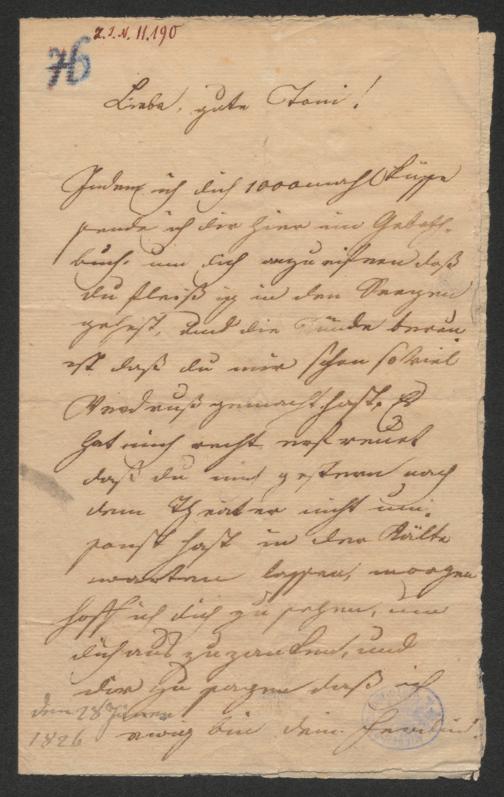 Z.I.N. 11.190
76
Liebe, gute Toni!
Indem ich dich 1000mahl küsse
sende ich dir hier ein Gebeth-
buch um dich anzueifern daß
du fleißig in den Seegen
gehest, und die Sünde bereu-
est daß du mir schon so viel
Verdruß gemacht hast. Es
hat mich recht erfreuet
daß du mich gestern nach
dem Theater nicht um-
sonst hast in der Kälte
warten lassen, morgen
hoff ich dich zu sehen, um
dich aus zu zanken, und
dir zu sagen daß ich
ewig bin dein Ferdind.
den 28 Jäner
1826